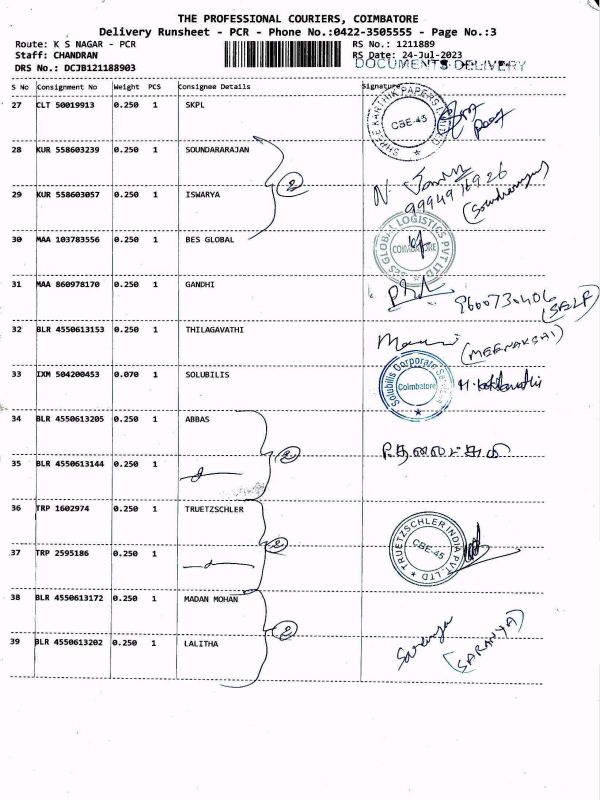 THE PROFESSIONAL COURIERS, COIMBATORE
Delivery Runsheet - PCR - Phone No.:0422-3505555 - Page No.:3
Route: K S NAGAR - PCR
RS No.: 1211889
Staff: CHANDRAN
RS Date: 24-Jul-2023
DRS No.: DCJB121188903
DOCUMENTS DELIVERY
S No Consignment No Weight PCS Consignee Details Signature
27 CLT 50019913 0.250 1 SKPL
SHREE KARTHIK PAPERS LIMITED
CBE-45
28 KUR 558603239 0.250 1 SOUNDARARAJAN
2
9994916926
29 KUR 558603057 0.250 1 ISWARYA
30 MAA 103783556 0.250 1 BES GLOBAL
BES GLOBAL LOGISTICS PVT LTD
COIMBATORE
31 MAA 860978170 0.250 1 GANDHI
9600730406
(SELF)
32 BLR 4550613153 0.250 1 THILAGAVATHI
(MEENAKSHI)
33 IXM 504200453 0.070 1 SOLUBILIS
Solubilis Corporate Services
Coimbatore
34 BLR 4550613205 0.250 1 ABBAS
2
35 BLR 4550613144 0.250 1
36 TRP 1602974 0.250 1 TRUETZSCHLER
2
TRUETZSCHLER INDIA PVT. LTD
CBE-45
37 TRP 2595186 0.250 1
38 BLR 4550613172 0.250 1 MADAN MOHAN
2
Saranya
(SARANYA)
39 BLR 4550613202 0.250 1 LALITHA